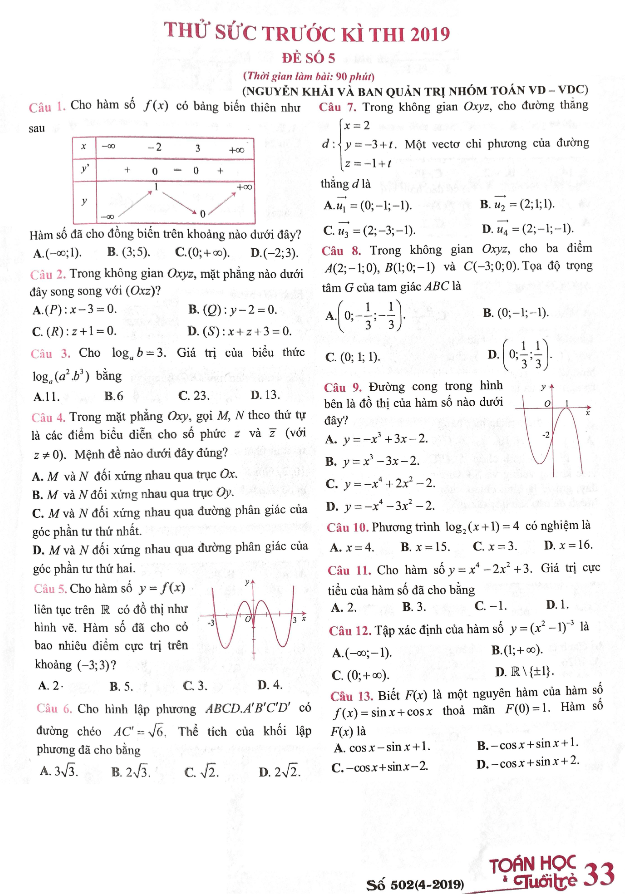 THỬ SỨC TRƯỚC KÌ THI 2019
ĐỀ SỐ 5
(Thời gian làm bài: 90 phút)
(NGUYỄN KHẢI VÀ BAN QUẢN TRỊ NHÓM TOÁN VD – VDC)
Câu 1. Cho hàm số f(x) có bảng biến thiên như
sau
x −∞ −2 3 +∞
y' + 0 − 0 +
y −∞ 1 0 +∞
Hàm số đã cho đồng biến trên khoảng nào dưới đây?
A.(−∞;1). B. (3;5). C.(0;+∞). D.(−2;3).
Câu 2. Trong không gian Oxyz, mặt phẳng nào dưới
đây song song với (Oxz)?
A.(P): x−3=0. B. (Q): y−2=0.
C. (R): z+1=0. D. (S): x+z+3=0.
Câu 3. Cho logₐ b=3. Giá trị của biểu thức
logₐ(a².b³) bằng
A.11. B.6 C. 23. D. 13.
Câu 4. Trong mặt phẳng Oxy, gọi M, N theo thứ tự
là các điểm biểu diễn cho số phức z và z̅ (với
z≠0). Mệnh đề nào dưới đây đúng?
A. M và N đối xứng nhau qua trục Ox.
B. M và N đối xứng nhau qua trục Oy.
C. M và N đối xứng nhau qua đường phân giác của
góc phần tư thứ nhất.
D. M và N đối xứng nhau qua đường phân giác của
góc phần tư thứ hai.
Câu 5. Cho hàm số y=f(x)
liên tục trên ℝ có đồ thị như
hình vẽ. Hàm số đã cho có
bao nhiêu điểm cực trị trên
khoảng (−3;3)?
y
-3 O 3 x
A. 2. B. 5. C. 3. D. 4.
Câu 6. Cho hình lập phương ABCD.A'B'C'D' có
đường chéo AC'=√6. Thể tích của khối lập
phương đã cho bằng
A. 3√3. B. 2√3. C. √2. D. 2√2.
Câu 7. Trong không gian Oxyz, cho đường thẳng
d: {x=2
y=−3+t. Một vectơ chỉ phương của đường
z=−1+t
thẳng d là
A.u₁⃗=(0;−1;−1). B. u₂⃗=(2;1;1).
C. u₃⃗=(2;−3;−1). D. u₄⃗=(2;−1;−1).
Câu 8. Trong không gian Oxyz, cho ba điểm
A(2;−1;0), B(1;0;−1) và C(−3;0;0). Tọa độ trọng
tâm G của tam giác ABC là
A.(0;−1/3;−1/3). B. (0;−1;−1).
C. (0; 1; 1). D.(0;1/3;1/3).
Câu 9. Đường cong trong hình
bên là đồ thị của hàm số nào dưới
đây?
y
O 1 x
-2
A. y=−x³+3x−2.
B. y=x³−3x−2.
C. y=−x⁴+2x²−2.
D. y=−x⁴−3x²−2.
Câu 10. Phương trình log₂(x+1)=4 có nghiệm là
A. x=4. B. x=15. C. x=3. D. x=16.
Câu 11. Cho hàm số y=x⁴−2x²+3. Giá trị cực
tiểu của hàm số đã cho bằng
A. 2. B. 3. C. −1. D. 1.
Câu 12. Tập xác định của hàm số y=(x²−1)⁻³ là
A.(−∞;−1). B.(1;+∞).
C. (0;+∞). D. ℝ\{±1}.
Câu 13. Biết F(x) là một nguyên hàm của hàm số
f(x)=sin x+cos x thoả mãn F(0)=1. Hàm số
F(x) là
A. cos x−sin x+1. B.−cos x+sin x+1.
C.−cos x+sin x−2. D.−cos x+sin x+2.
Số 502(4-2019) TOÁN HỌC & Tuổi trẻ 33